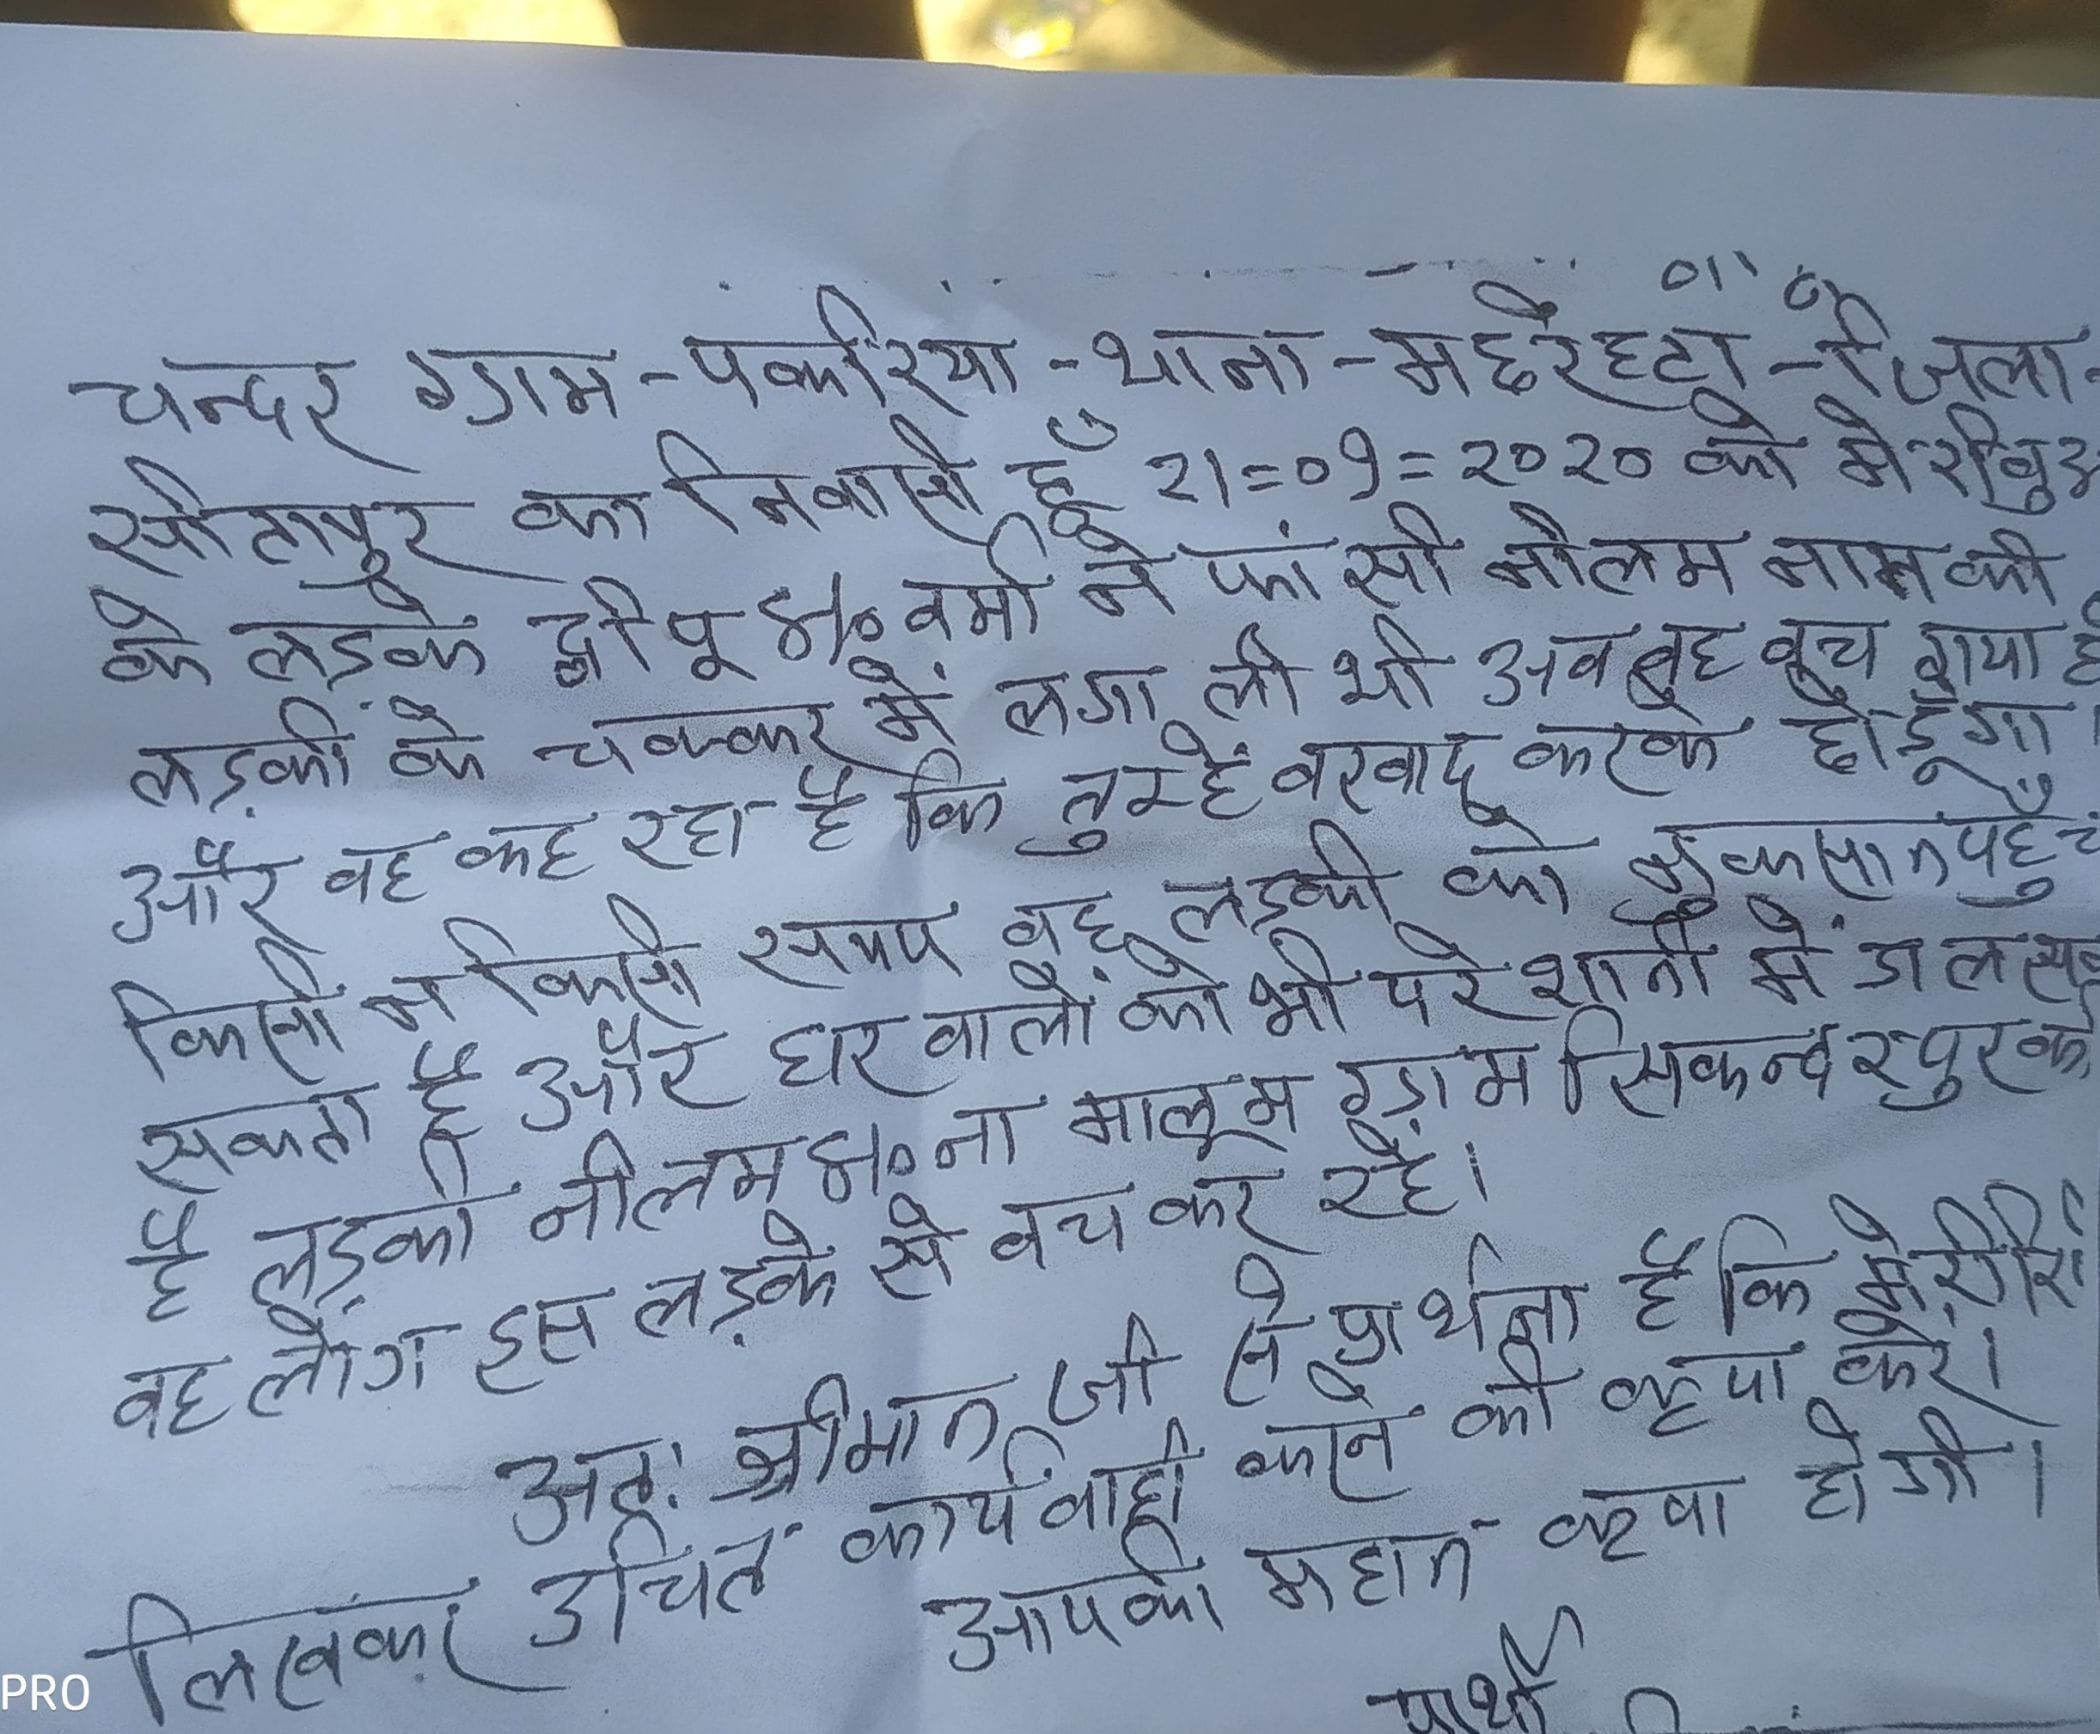 चन्दर ग्राम-पकरिया-थाना-मछरेहटा-जिला-
सीतापुर का निवासी हूँ 21=09=2020 को मेरी बुआ
के लड़के दीपू S/० वर्मा ने फांसी नीलम नाम की
लड़की के चक्कर में लगा ली थी अव वह वच गया है
और वह कह रहा है कि तुम्हें वरवाद करके छोडूँगा।
किसी न किसी समय वह लड़की को नुकसान पहुँच
सकता है और घर वालों को भी परेशानी में डाल सक
है लड़की नीलम S/० ना मालूम ग्राम सिकन्दरपुर की
वह लोग इस लड़के से वच कर रहें।
अतः श्रीमान जी से प्रार्थना है कि मेरी
लिखकर उचित कार्यवाही करने की कृपा करें।
आपकी महान कृपा होगी।
प्रार्थी
PRO